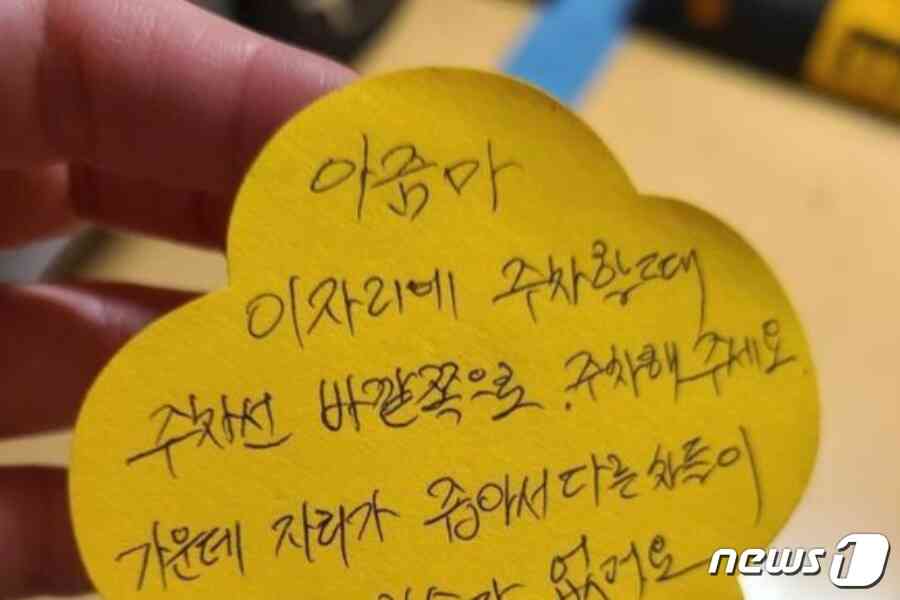 아줌마
이자리에 주차할때
주차선 바깥쪽으로 주차해 주세요
가운데 자리가 좁아서 다른 차들이
없어요
news1